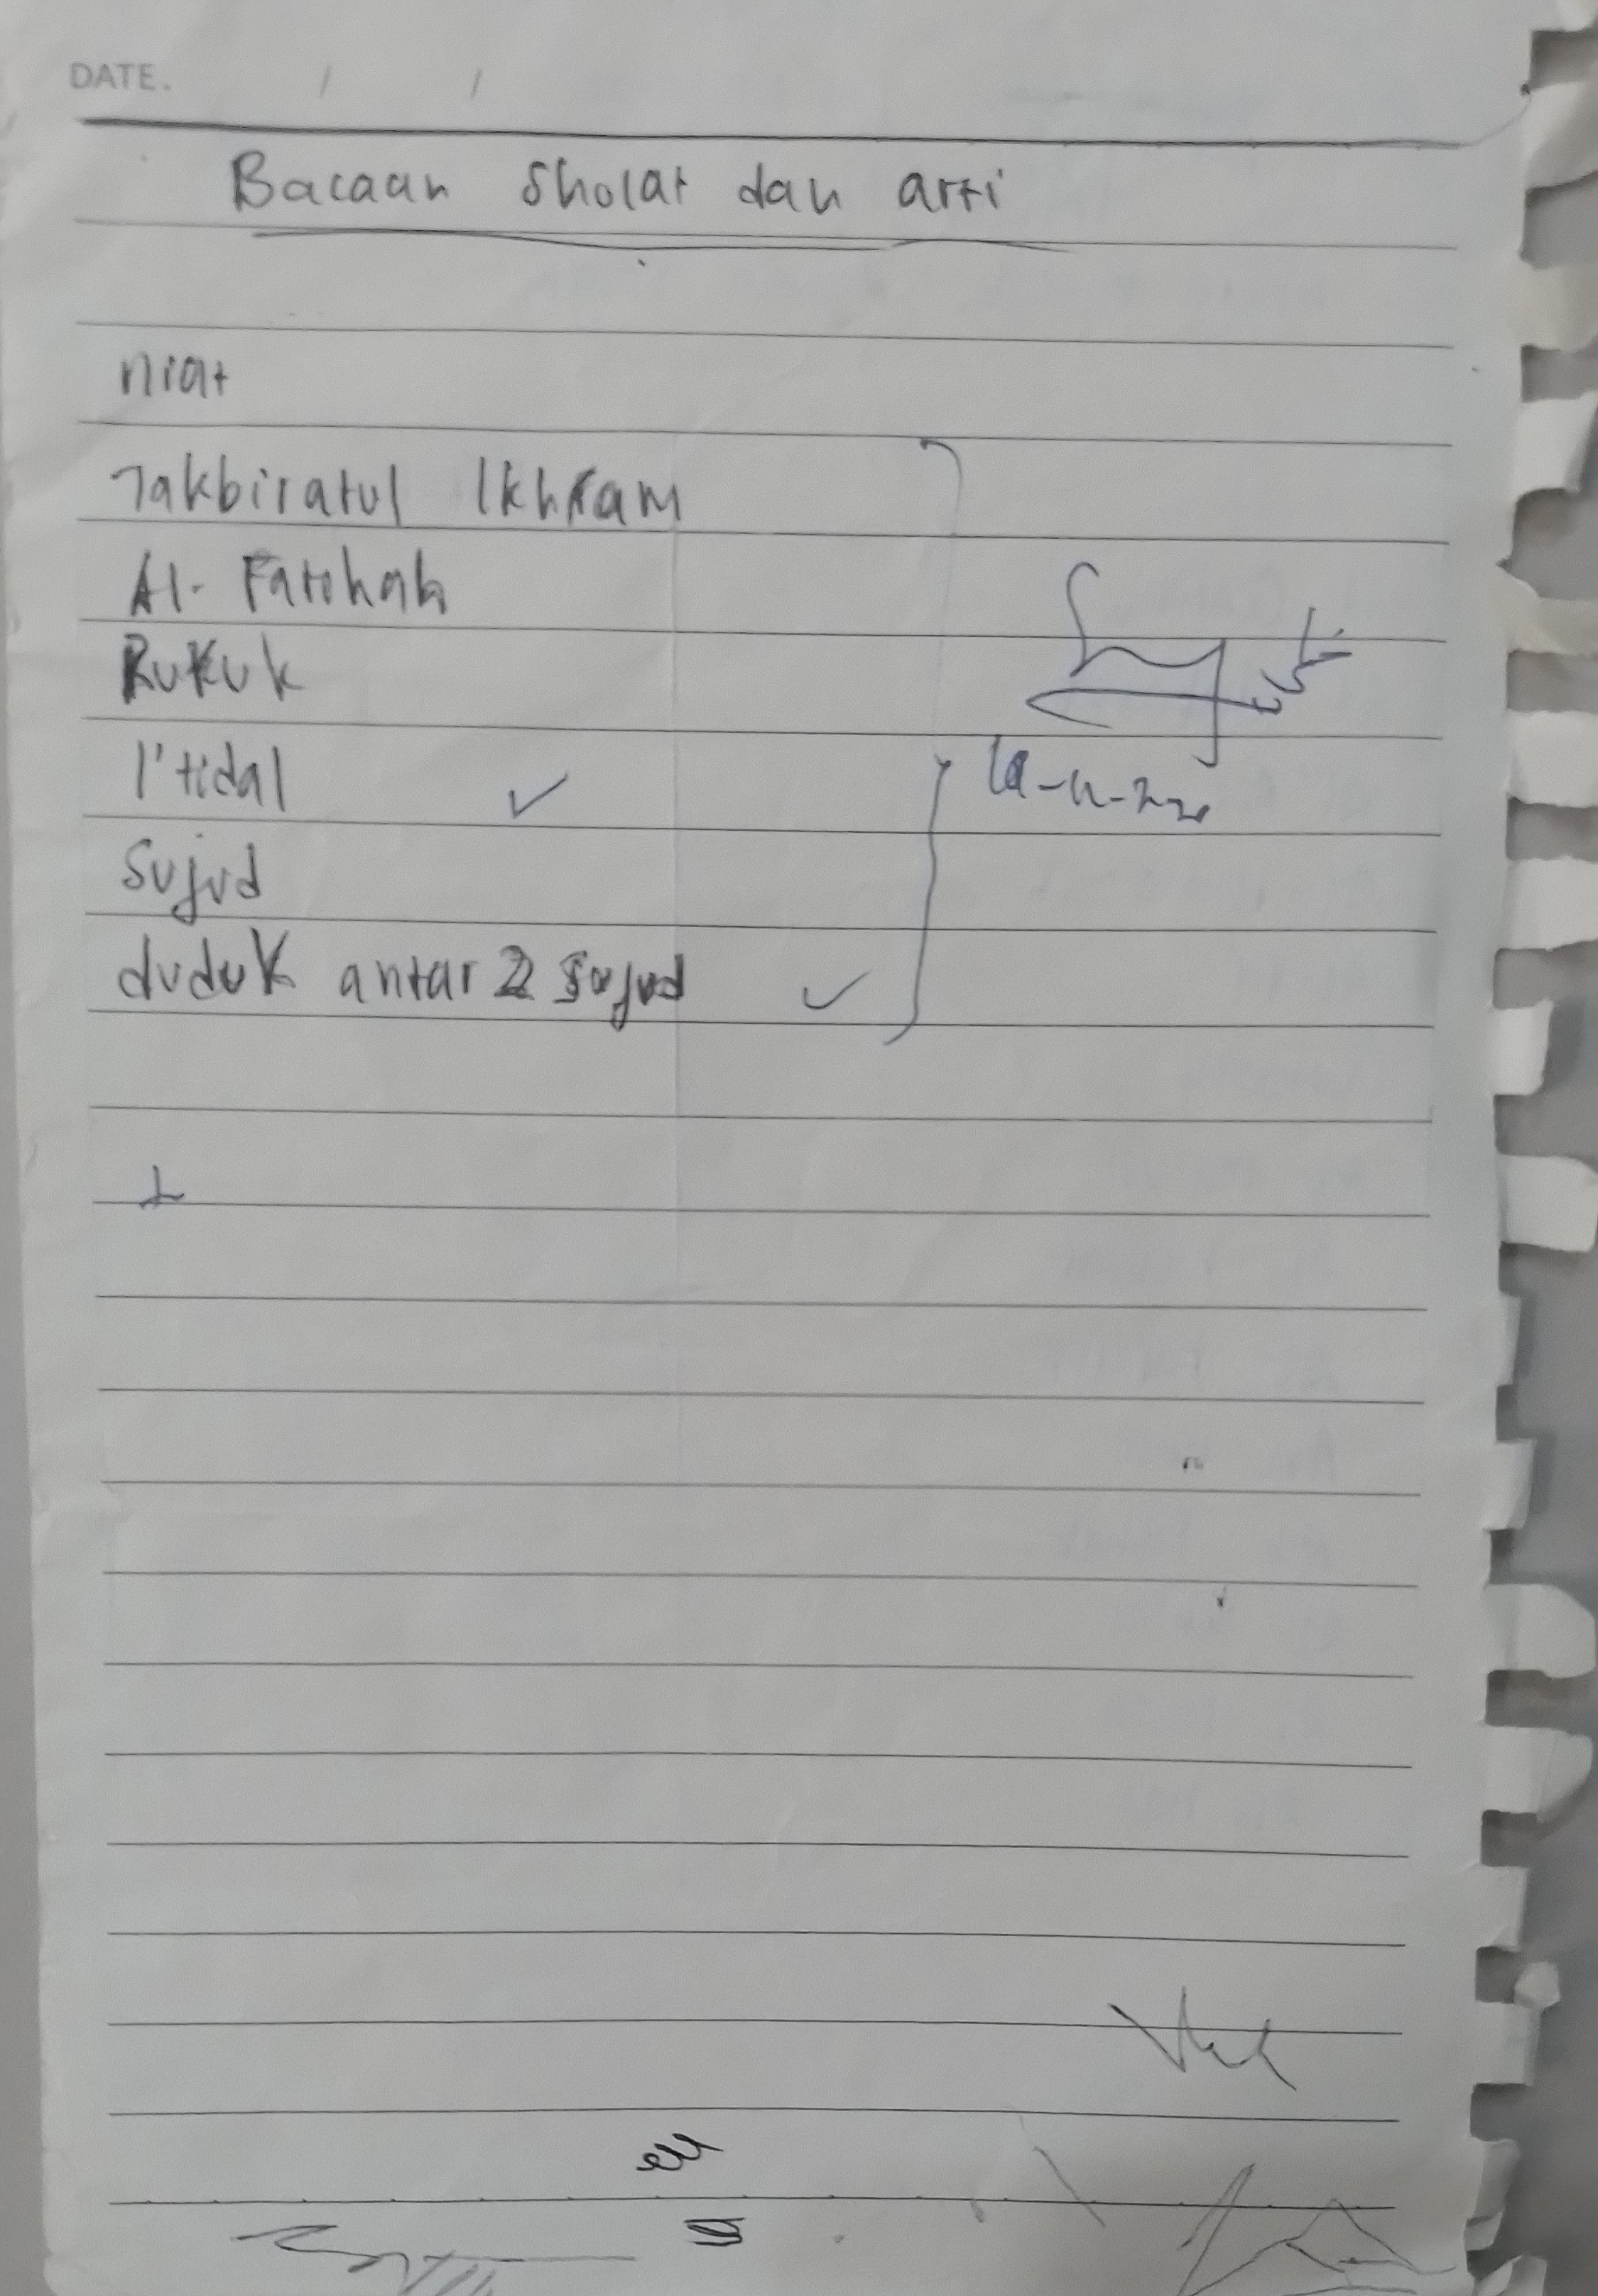 DATE. / /
Bacaan Sholat dan arti
niat
Takbiratul Ikhram
Al-Fatihah
Rukuk
I'tidal ✓
Sujud
duduk antar 2 sujud ✓